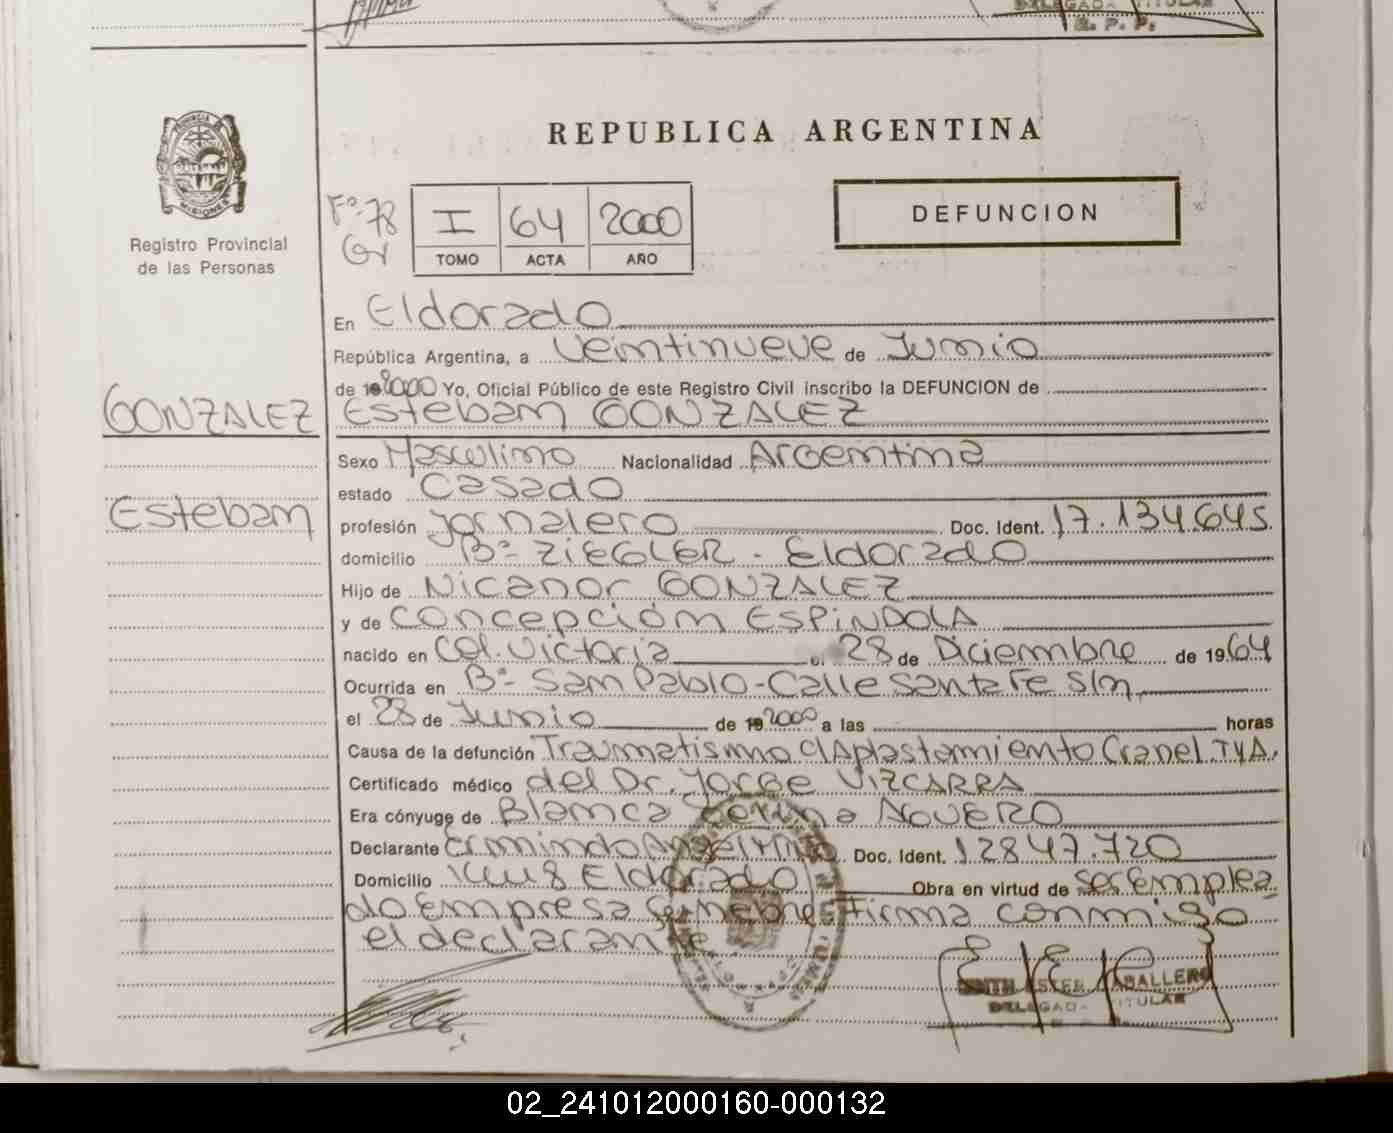 DELEGADA TITULAR
R. P. P.
PROVINCIA DE
MISIONES
Registro Provincial
de las Personas
REPUBLICA ARGENTINA
Fº 78
I 64 2000
TOMO ACTA AÑO
DEFUNCION
En Eldorado
República Argentina, a Veintinueve de Junio
de 2000 Yo, Oficial Público de este Registro Civil inscribo la DEFUNCION de
GONZALEZ
Esteban GONZALEZ
Sexo Masculino Nacionalidad Argentina
estado Casado
Esteban
profesión Jornalero Doc. Ident. 17.134.645
domicilio Bº ZIEGLER - Eldorado
Hijo de Nicanor GONZALEZ
y de Concepción ESPINDOLA
nacido en Col. Victoria el 28 de Diciembre de 1964
Ocurrida en Bº San Pablo - Calle Santa Fe S/n
el 28 de Junio de 2000 a las horas
Causa de la defunción Traumatismo c/Aplastamiento Cranel. T y A.
Certificado médico del Dr. Jorge VIZCARRA
Era cónyuge de Blanca AGUERO
Declarante Ermindo Doc. Ident. 12847.720
Domicilio Km 8 Eldorado Obra en virtud de ser Emplea
do Empresa Funebre Firma conmigo
el declarante
EDITH ESTER CABALLERO
DELEGADA TITULAR
02_241012000160-000132